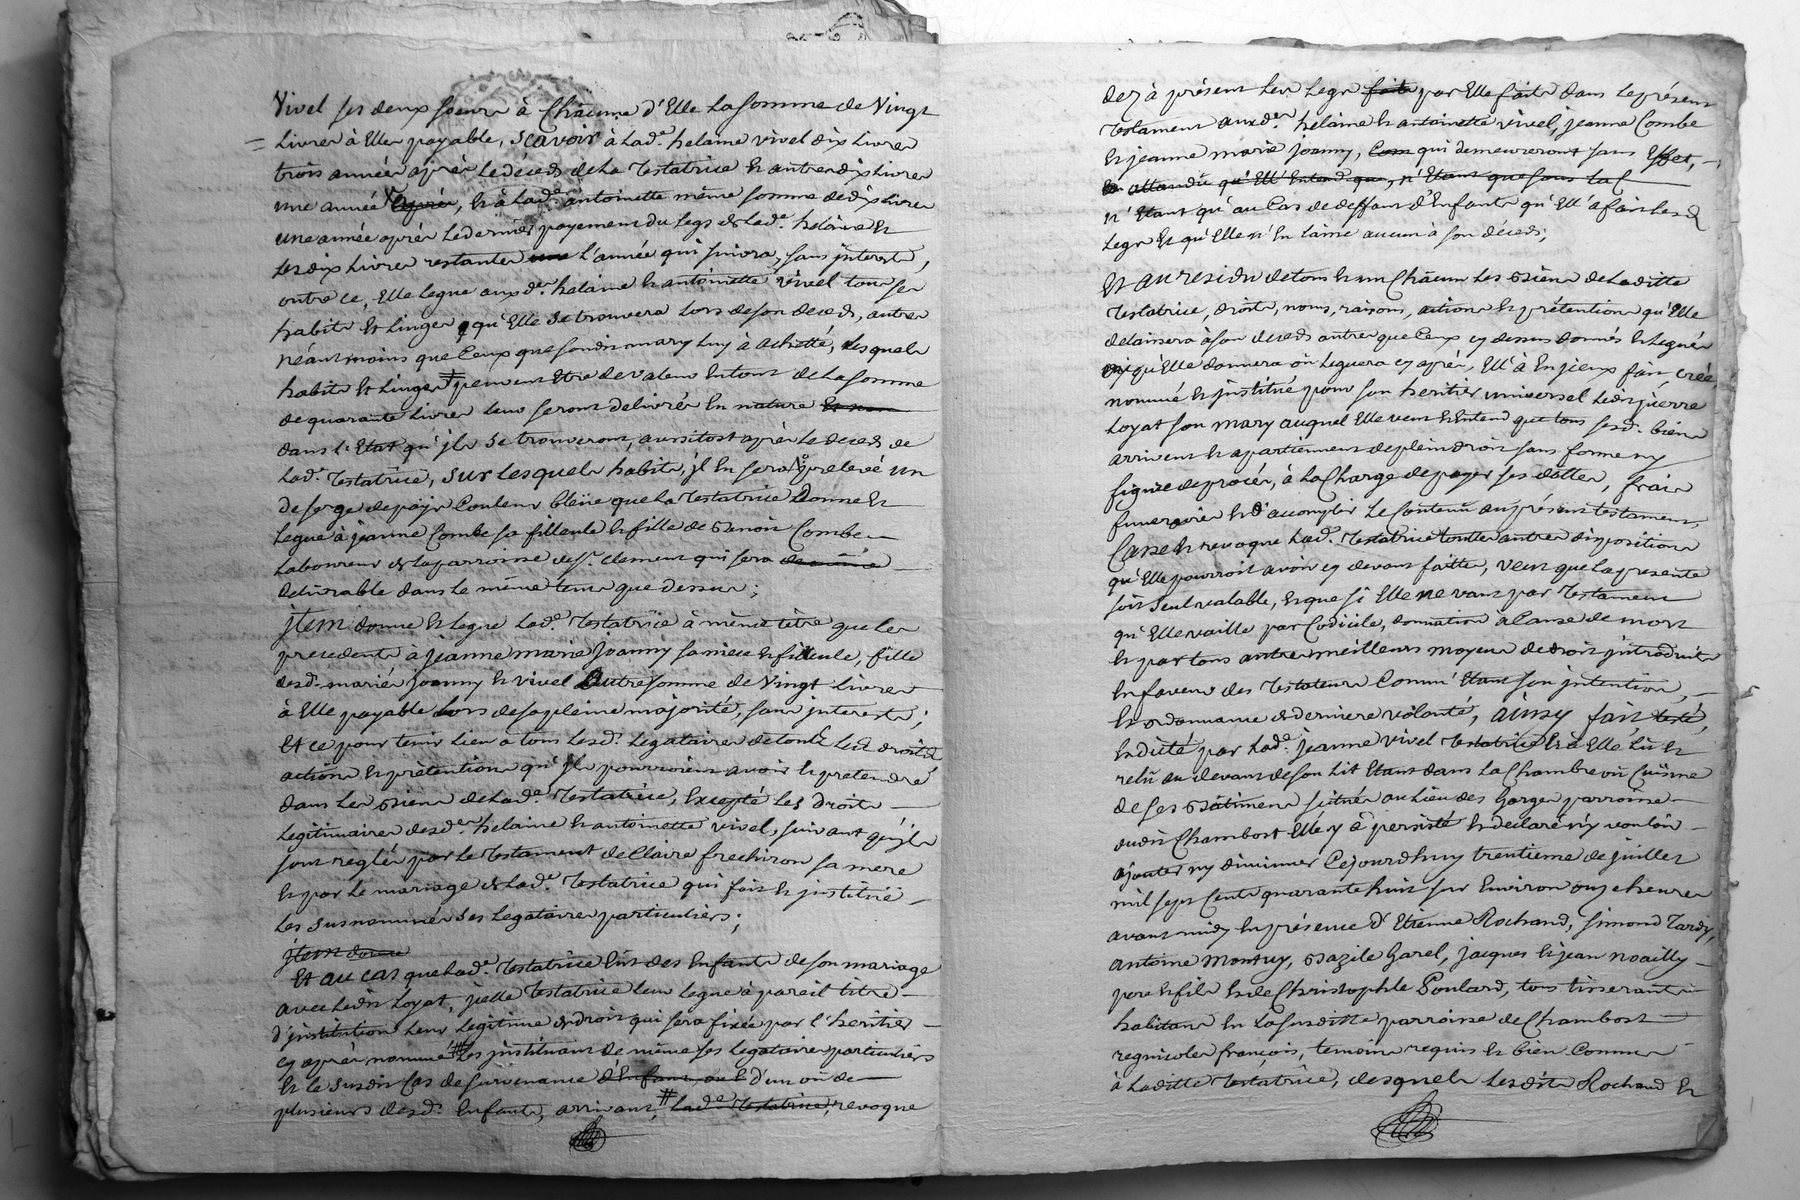 Vivel ses deux soeurs à Chacune d'Elle La somme de Vingt
Livres à Elles payable, Scavoir à Lad.e helaine vivel dix Livres
trois années après Le déceds de La Testatrice Et autres dix Livres
une année après, Et à Lad.e antoinette même somme de dix Livres
une année après Le dernier payement du Legs de Lad.e helaine Et
Les dix Livres restantes une L'année qui suivra, sans jnterests,
outre ce, Elle Legue auxd.es helaine Et antoinette vivel tous ses
habits Et Linges, qu'Elle se trouvera Lors de son deceds, autres
néantmoins que Ceux que sondit mary Luy a achetté, Lesquels
habits Et Linges # peuvent Etre de valeur Entout de La somme
de quarante Livres Leur seront delivrés En nature Et non
dans L'Etat qu'jls se trouveront, aussitost après Le deceds de
Lad.e Testatrice, sur Lesquels habits, jl En sera prelevé un
de serge de pays Couleur bleüe que La Testatrice Donne Et
Legue à jeanne Combe sa filleule Et fille de Benoit Combe
Laboureur de La parroisse de St. Clement qui sera
delivrable dans Le même tems que dessus;
jtem donne Et Legue Lad.e Testatrice à même titre que Les
precedents à jeanne marie joanny sa niece Et filleule, fille
desd. mariés joanny Et vivel Autre somme de Vingt Livres
à Elle payable Lors de sa pleine majorité, sans jnterests;
Et ce pour tenir Lieu a tous Lesd. Legataires de touts Les droits
actions Et prétentions qu'jls pourroient avoir Et pretendre
dans Les Biens de Lad.e Testatrice, Excepté Les droits
Legitimaires desd.es helaine Et antoinette vivel, suivant qu'jls
sont reglés par Le Testament de Claire frechiron sa mere
Et par Le mariage de Lad.e Testatrice qui fait Et jnstitué
Les susnommés Ses Legataires particuliers;
jtem donne
Et au cas que Lad.e Testatrice Eut des Enfants de son mariage
avec Ledit Loyat, jcelle Testatrice Leur Legue à pareil titre
d'jnstitution Leur Legitime de droit qui sera fixée par L'heritier
cy après nommé # Les jnstituant de même ses Legataires particuliers
Et Le susdit Cas de survenance d'Enfant, ou E d'un où de
plusieurs desd. Enfants, arrivant, # Lad.e Testatrice, revoque
dez à présent Les Legs faits par Elle faits dans Le présent
Testament auxd.es helaine Et antoinette vivel, jeanne Combe
Et jeanne marie joanny, Com qui demeureront sans Effet,
En attandu qu'Ell'Entend que, n'Etant que sous La C
n'Etant qu'au Cas de deffaut d'Enfants qu'Ell'a fait Lesd.
Legs Et qu'Elle n'En Laisse aucun à son déceds;
Et au residu de tous Et un Châcun Les Biens de Laditte
Testatrice, droits, noms, raisons, actions Et prétentions qu'Elle
delaissera à son deceds autres que Ceux cy dessus donnés Et Legués
qu'Elle donnera où Leguera cy après, Ell'à En jceux fait, créé
nommé Et jnstitué pour son heritier universel Ledit pierre
Loyat son mary auquel Elle veut Et Entend que tous sesd. biens
arrivent Et apartiennent de plein droit sans forme ny
figure de procès, à La Charge de payer ses dettes, frais
funeraires Et d'accomplir Le Contenû au présent testament,
Casse Et revoque Lad.e Testatrice touttes autres dispositions
qu'Elle pourroit avoir cy devant faittes, veut que La presente
soit seul valable, Et que si Elle ne vaut par Testament
qu'Elle vaille par Codicile, donnation à Cause de mort
Et par tous autres meilleurs moyens de droit jntroduits
En faveur des Testateurs Comm'Etant son jntention,
Et ordonnance de derniere volonté, ainsy fait testé,
Et dicté par Lad.e jeanne vivel Testatrice Et à Elle Lû Et
relû au devant de son Lit Etant dans La Chambre où Cuisine
de ses Bâtimens situés au Lieu des Gorges parroisse
dudit Chambost Elle y à persisté Et declaré n'y vouloir
ajouter ny diminuer Cejourdhuy trentieme de juillet
mil sept Cents quarante huit sur Environ onze heures
avant midy En présence d'Etienne Rochand, simond Tardy,
antoine Montuy, Bazile Garel, jacques Et jean noailly
pere Et fils Et de Christophle Poulard, tous tisserants
habitans En La susditte parroisse de Chambost
regnicoles françois, temoins requis Et bien Connus
à Laditte Testatrice, desquels Lesdits Rochand Et